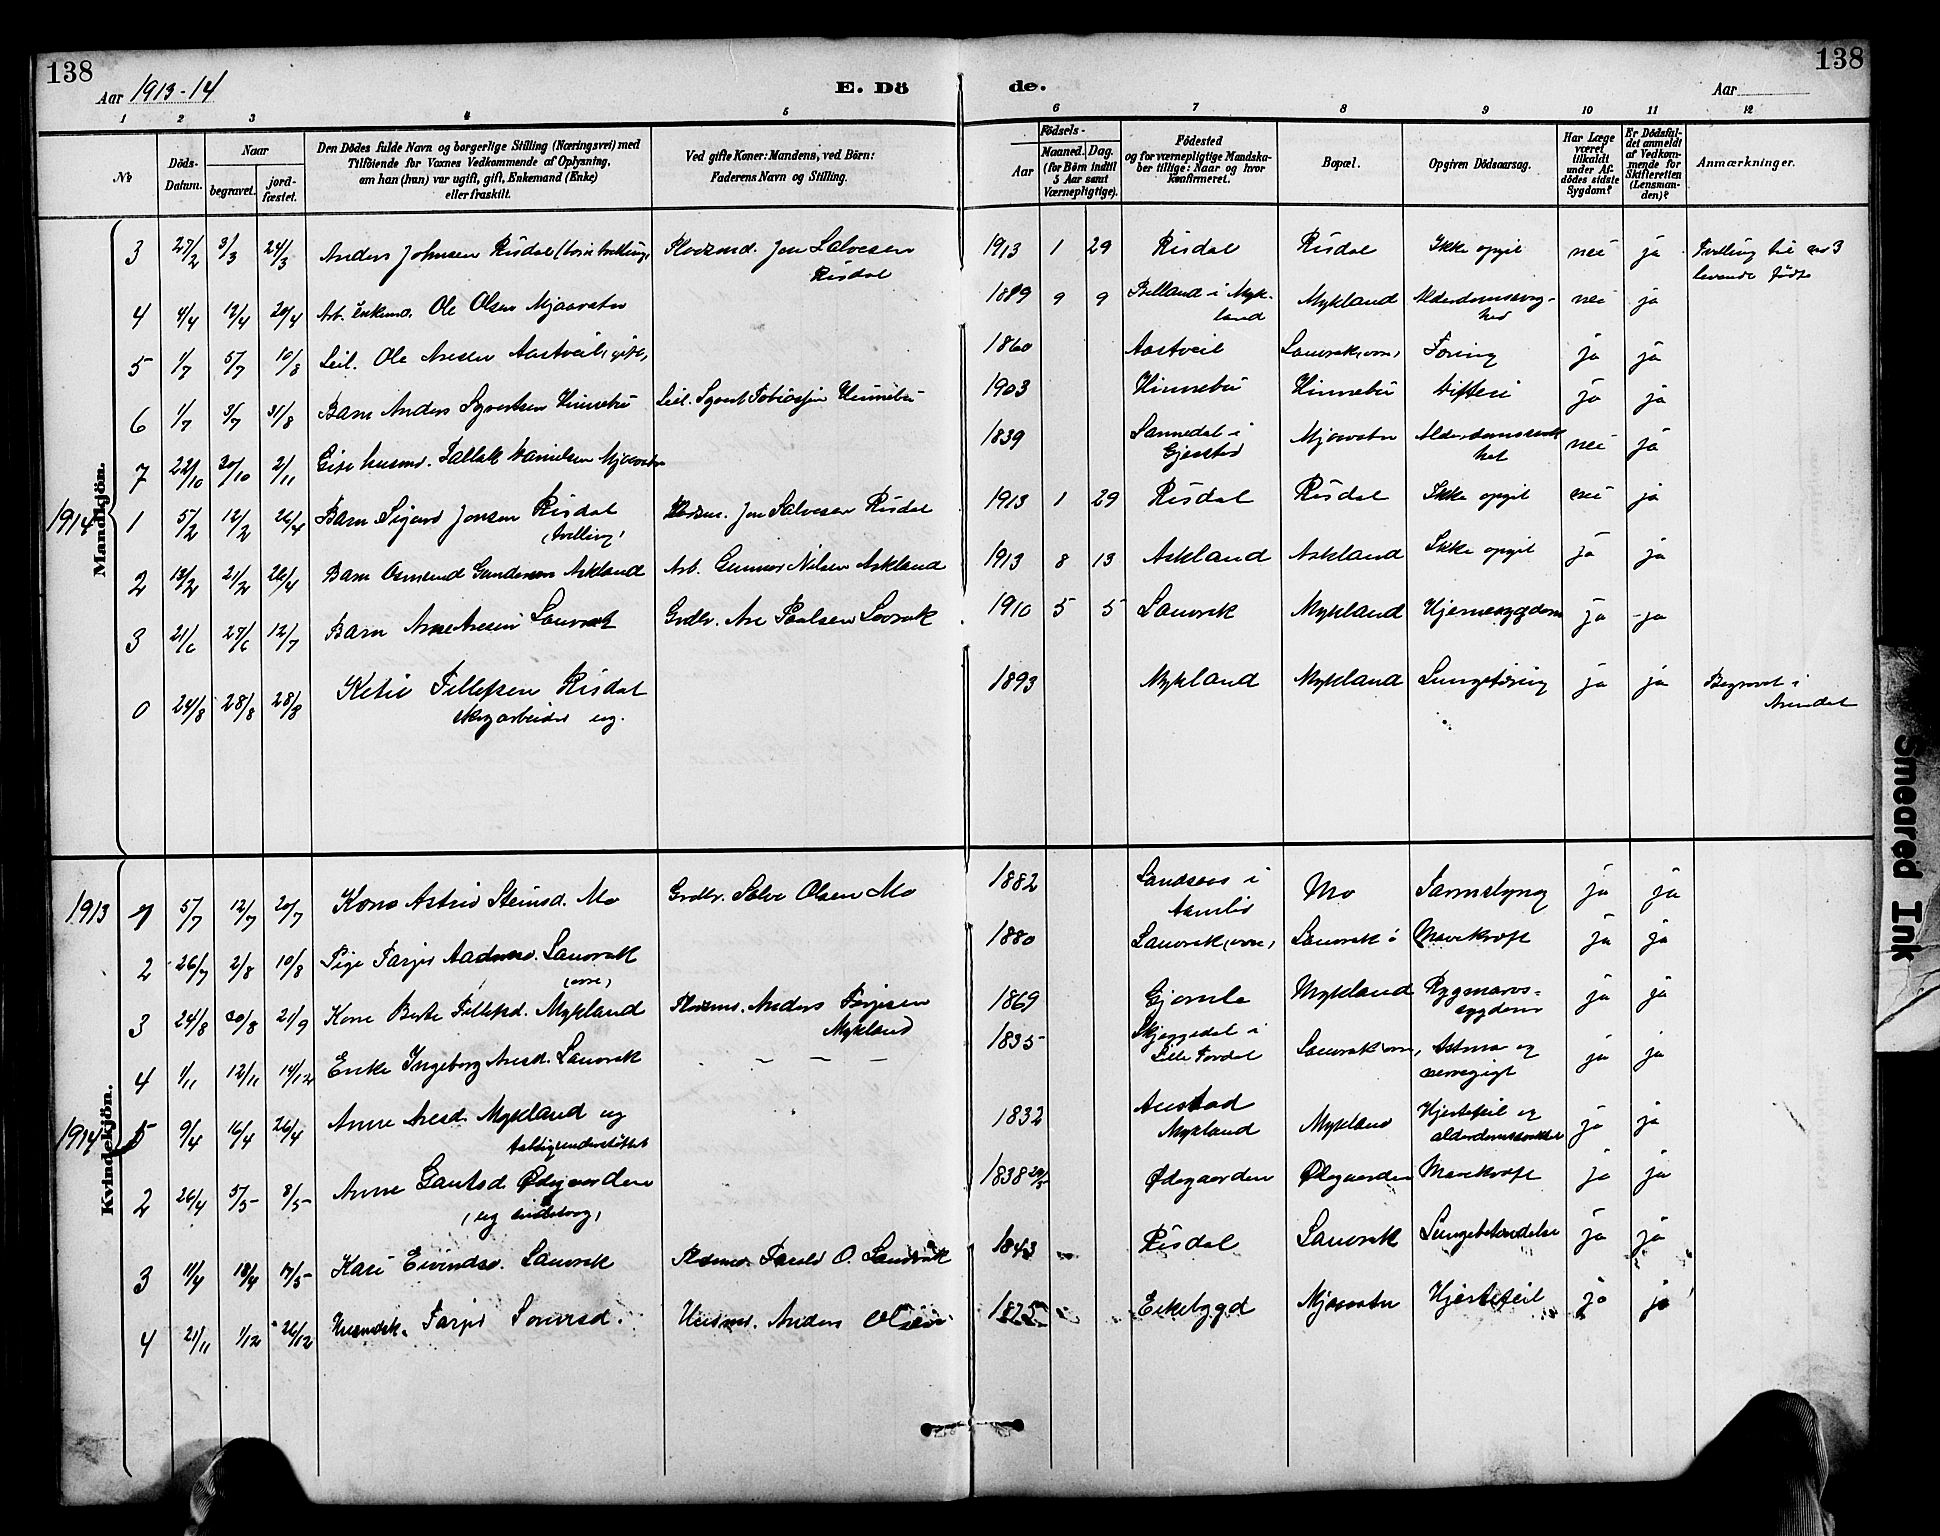 138
138
Aar 1913-14
E. Dö
de.
Aar
1 2 3 4 5 6 7 8 9 10 11 12
No
Döds-
Datum.
Naar
begravet.
jord-
fæstet.
Den Dödes fulde Navn og borgerlige Stilling (Næringsvei) med
Tilföiende for Voxnes Vedkommende af Oplysning,
om han (hun) var ugift, gift, Enkemand (Enke)
eller fraskilt.
Ved gifte Koner: Mandens, ved Börn:
Faderens Navn og Stilling.
Födsels-
Aar
Maaned. Dag.
(for Börn indtil
5 Aar samt
Værnepligtige).
Födested
og for værnepligtige Mandska-
ber tillige: Naar og hvor
Konfirmeret.
Bopæl.
Opgiven Dödsaarsag.
Har Læge
været
tilkaldt
under Af-
dödes sidste
Sygdom?
Er Dödsfal-
det anmeldt
af Vedkom-
mende for
Skifteretten
(Lensman-
den)?
Anmærkninger.
Mandkjön.
3 27/2 3/3 24/3 Anders Johnsen Risdal Plodsmd. Jon Salvesen Risdal 1913 1 29 Risdal Risdal Ikke opgit nei ja Tvilling til no 3 levende födte
4 4/4 12/4 20/4 Arb. Enkem. Ole Olsen Mjaavatn 9 9 i Mykland Mykland nei ja
5 1/7 5/7 10/8 Leil. Ole Aresen Aastveit, gift, 1860 Aastveit Lauvrak Tæring ja ja
6 1/7 3/7 31/8 Barn Anders Syvertsen Hinnebu Leil. Syvert Tobiassen Hinnebu 1903 Hinnebu Hinnebu Difteri ja ja
7 22/10 30/10 2/11 Gift husmd. Tallak Danielsen Mjaavatn 1839 i Gjerstad Mjaavatn nei ja
1914
1 5/2 12/2 26/4 Barn Sigurd Jonsen Risdal (tvilling) Jon Salvesen Risdal 1913 1 29 Risdal Risdal Ikke opgit nei ja
2 13/2 21/2 26/4 Barn Osmund Gundersen Askland Arb. Gunnar Nilsen Askland 1913 8 13 Askland Askland Ikke opgit ja ja
3 21/6 27/6 12/7 Barn Arne Aresen Lauvrak Grdbr. Are Paalsen Lovrak 1910 5 5 Lauvrak Mykland Hjernesygdom ja ja
0 24/8 28/8 28/8 Ketil Tellefsen Risdal skogarbeider ug. 1893 Mykland Mykland Lungetæring ja ja Begravet i Arendal
Kvindekjön.
1913
1 5/7 12/7 20/7 Kone Astrid Steinsd. Mo Grdbr. Salve Olsen Mo 1882 i Aamlid Mo Tarmslyng ja ja
2 26/7 2/8 10/8 Pige Tarjer Aadnesd. Lauvrak 1880 Lauvrak Lauvrak Mavekræft ja ja
3 24/8 30/8 21/9 Kone Berte Tellefsd. Mykland Plodsmd. Anders Terjesen Mykland 1869 Gjømle Mykland Rygmarvs-sygdom ja ja
4 1/11 12/11 14/12 Enke Ingeborg Aresd. Lauvrak – – – 1835 Skjeggedal i Lille Tovdal Lauvrak Astma og nervegigt ja ja
1914
9/4 16/4 26/4 Anne Aresd. Mykland ug fattigunderstöttet 1832 Austad Mykland Mykland Hjertefeil og ja ja
2 26/4 5/5 8/5 Anne Gautsd. Ødegaarden 1838 Ødegaarden Ødegaarden Mavekræft ja ja
3 11/4 18/4 17/5 Kari Eivindsd. Lauvrak Tarald O. Lauvrak 1843 Risdal Lauvrak Lungebetændelse ja ja
4 21/11 1/12 26/12 Husmdk. Tarjer Husmd. Anders Olsen 1875 Eikebygd Mjaavatn Hjertefeil ja ja
Smeared Ink